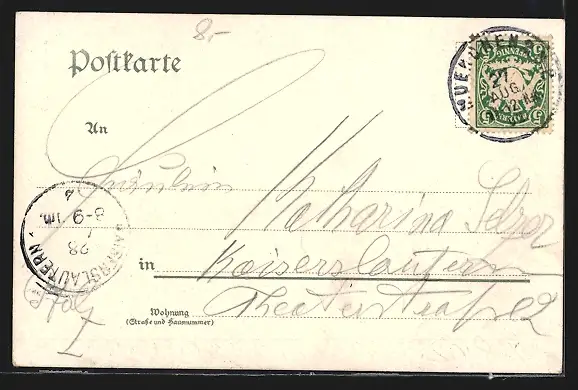 8.-
Postkarte
MUENCHEN
27
AUG.
BAYERN
5 PFENNIG 5
An
Fräulein
Katharina
in Kaiserslautern
Theaterstraße 2
KAISERSLAUTERN
8-9 Vm.
28
Pfalz
Wohnung
(Straße und Hausnummer)